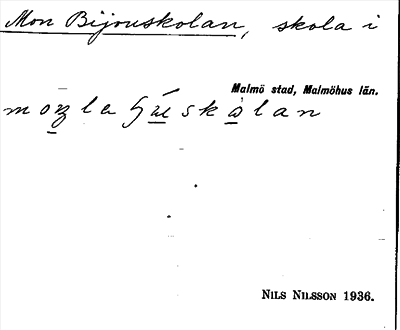 Mon Bijouskolan, skola i
Malmö stad, Malmöhus län.
skolan
NILS NILSSON 1936.